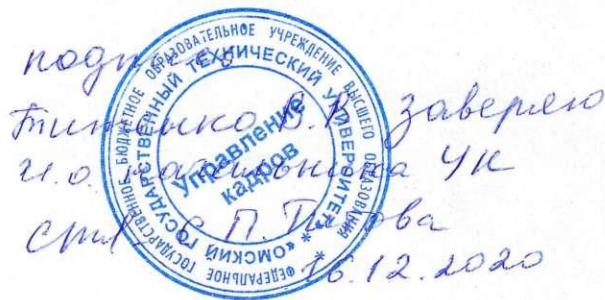 подпись
В.К. заверяю
и.о. начальника УК
С.П.
16.12.2020
ФЕДЕРАЛЬНОЕ ГОСУДАРСТВЕННОЕ БЮДЖЕТНОЕ ОБРАЗОВАТЕЛЬНОЕ УЧРЕЖДЕНИЕ ВЫСШЕГО ОБРАЗОВАНИЯ
«ОМСКИЙ ГОСУДАРСТВЕННЫЙ ТЕХНИЧЕСКИЙ УНИВЕРСИТЕТ»
Управление
кадров